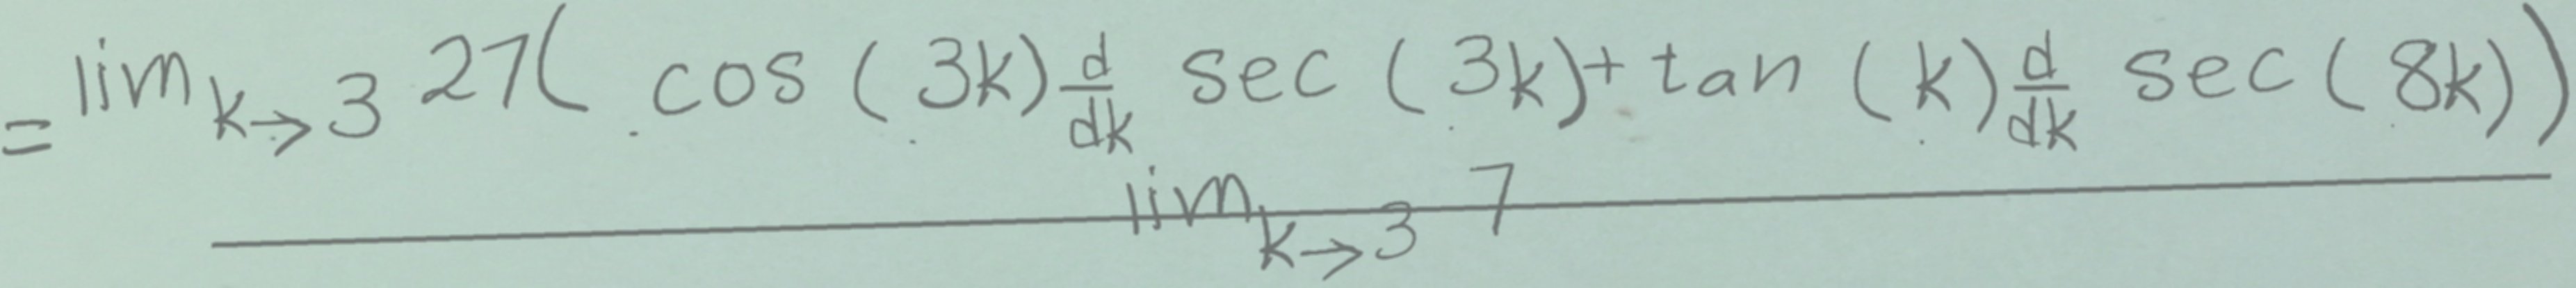 = lim_{k→3} 27( cos(3k) \frac{d}{dk} sec(3k) + tan(k) \frac{d}{dk} sec(8k))
lim_{k→3} 7